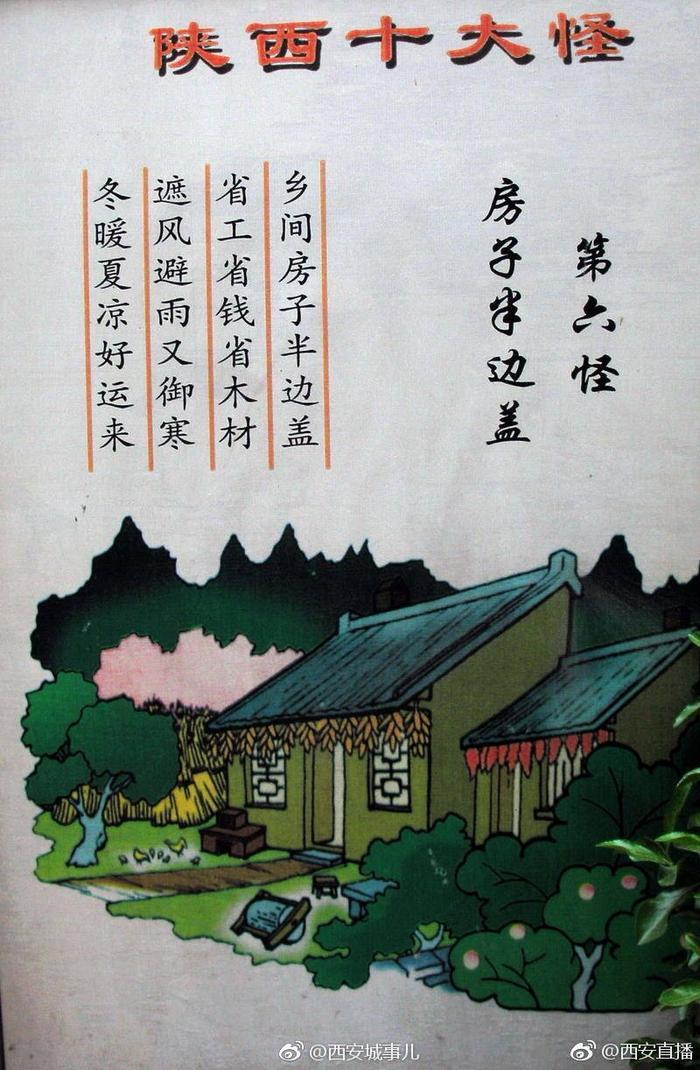 陕西十大怪
第六怪
房子半边盖
乡间房子半边盖
省工省钱省木材
遮风避雨又御寒
冬暖夏凉好运来
@西安城事儿
@西安直播